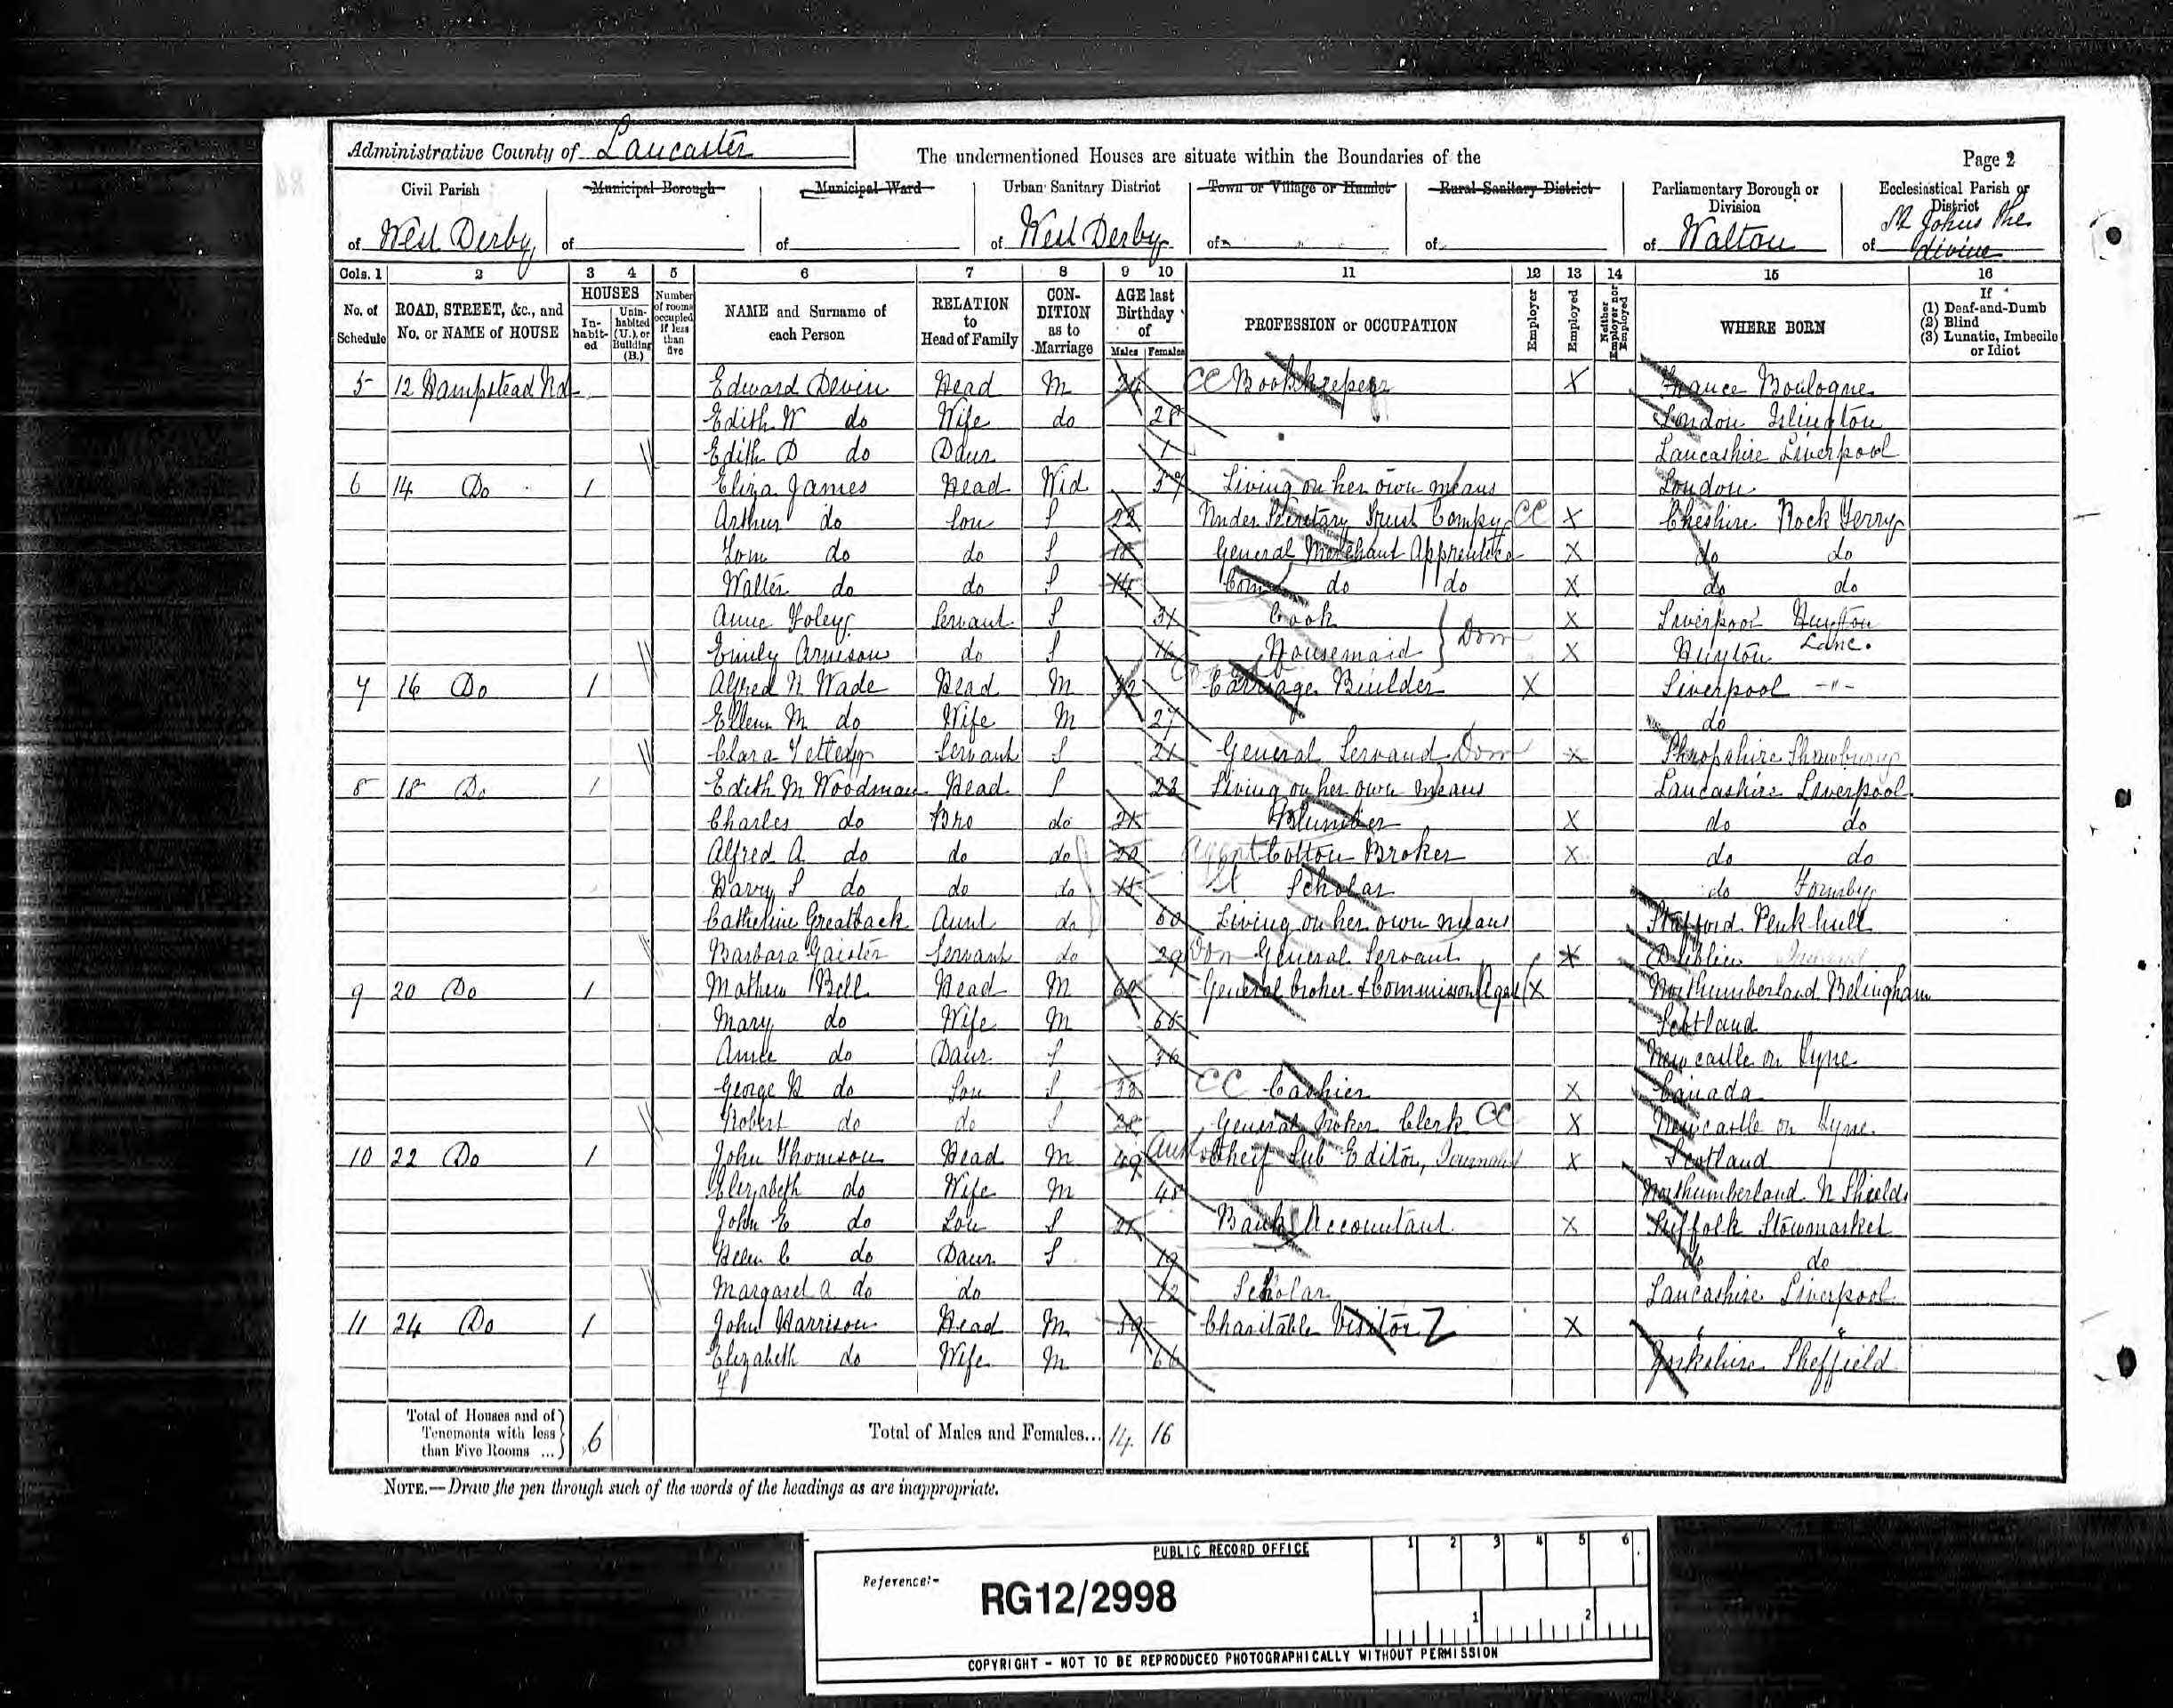 Administrative County of Lancaster
The undermentioned Houses are situate within the Boundaries of the
Page 2
Civil Parish of West Derby
Municipal Borough of
Municipal Ward of
Urban Sanitary District of West Derby
Town or Village or Hamlet of
Rural Sanitary District of
Parliamentary Borough or Division of Walton
Ecclesiastical Parish or District of St Johns the divine
Cols. 1 2 3 4 5 6 7 8 9 10 11 12 13 14 15 16
No. of Schedule
ROAD, STREET, &c., and No. or NAME of HOUSE
HOUSES
In-habit-ed
Unin-habited (U.), or Building (B.)
Number of rooms occupied if less than five
NAME and Surname of each Person
RELATION to Head of Family
CON-DITION as to Marriage
AGE last Birthday of
Males Females
PROFESSION or OCCUPATION
Employer
Employed
Neither Employer nor Employed
WHERE BORN
If
(1) Deaf-and-Dumb
(2) Blind
(3) Lunatic, Imbecile or Idiot
5 12 Hampstead Rd Edward Devin Head M 34 CC Bookkeeper X France Boulogne
Edith W do Wife do 28 London Islington
Edith D do Daur 1 Lancashire Liverpool
6 14 Do 1 Eliza James Head Wid 57 Living on her own means London
Arthur do Son S 22 Under Secretary Trust Compy CC X Cheshire Rock Ferry
Tom do do S General Merchant Apprentice X do do
Walter do do S 14 do do X do do
Anne Foley Servant S 31 Cook X Liverpool Huyton
Emily Arnison do S 16 Housemaid } Dom X Huyton Lanc.
7 16 Do 1 Alfred H Wade Head M 32 Carriage Builder X Liverpool -"-
Ellen M do Wife M 27 do
Clara Servant S 21 General Servand Dom X Shropshire Shawbury
8 18 Do 1 Edith M Woodman Head S 22 Living on her own means Lancashire Liverpool
Charles do Bro do 21 Plumber X do do
Alfred A do do do 20 Agent Cotton Broker X do do
Harry S do do do 15 St Scholar do Formby
Catherine Greatback Aunt do 60 Living on her own means Stafford Penkhull
Barbara Gaister Servant do 29 Dom General Servant X Dublin
9 20 Do 1 Mathew Bell Head M General broker & Commisson Agent X Northumberland Belingham
Mary do Wife M 65 Scotland
Annie do Daur S 36 Newcastle on Tyne
George H do Son S 33 CC Cashier X Canada
Robert do do S 28 General broker Clerk CC X Newcastle on Tyne
10 22 Do 1 John Thomson Head M 49 Author Cheif Sub Editor, Journalist X Scotland
Elizabeth do Wife M 48 Northumberland N Shields
John E do Son S 21 Bank Accountant X Suffolk Stowmarket
Helen C do Daur S 19 do do
Margaret A do do 12 Scholar Lancashire Liverpool
11 24 Do 1 John Harrison Head M 59 Charitable Visitor Z X " "
Elizabeth do Wife M 66 Yorkshire Sheffield
Total of Houses and of Tenements with less than Five Rooms ...} 6
Total of Males and Females... 14 16
NOTE.—Draw the pen through such of the words of the headings as are inappropriate.
PUBLIC RECORD OFFICE
1 2 3 4 5 6
Reference:-
RG12/2998
1 2
COPYRIGHT - NOT TO BE REPRODUCED PHOTOGRAPHICALLY WITHOUT PERMISSION